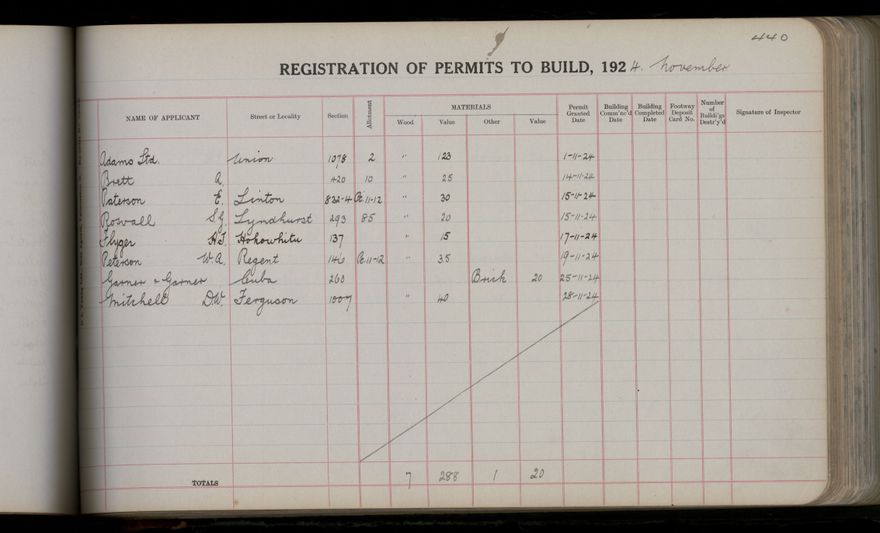 440
REGISTRATION OF PERMITS TO BUILD, 1924. November
NAME OF APPLICANT Street or Locality Section Allotment MATERIALS Wood Value Other Value Permit Granted Date Building Comm'nc'd Date Building Completed Date Footway Deposit Card No. Number of Buildi'gs Destr'y'd Signature of Inspector
Adams Ltd. Union 1078 2 " 123 1-11-24
Brett A. 420 10 " 25 14-11-24
Paterson E. Linton 832-4 Pt. 11-12 " 30 15-11-24
Roswall S.J. Lyndhurst 293 85 " 20 15-11-24
Flyger H.J. Hokowhitu 137 " 15 17-11-24
Peterson W.A. Regent 146 Pt. 11-12 " 35 19-11-24
Garner & Garner Cuba 260 Brick 20 25-11-24
Mitchell D.W. Ferguson 1007 " 40 28-11-24
TOTALS 7 288 1 20